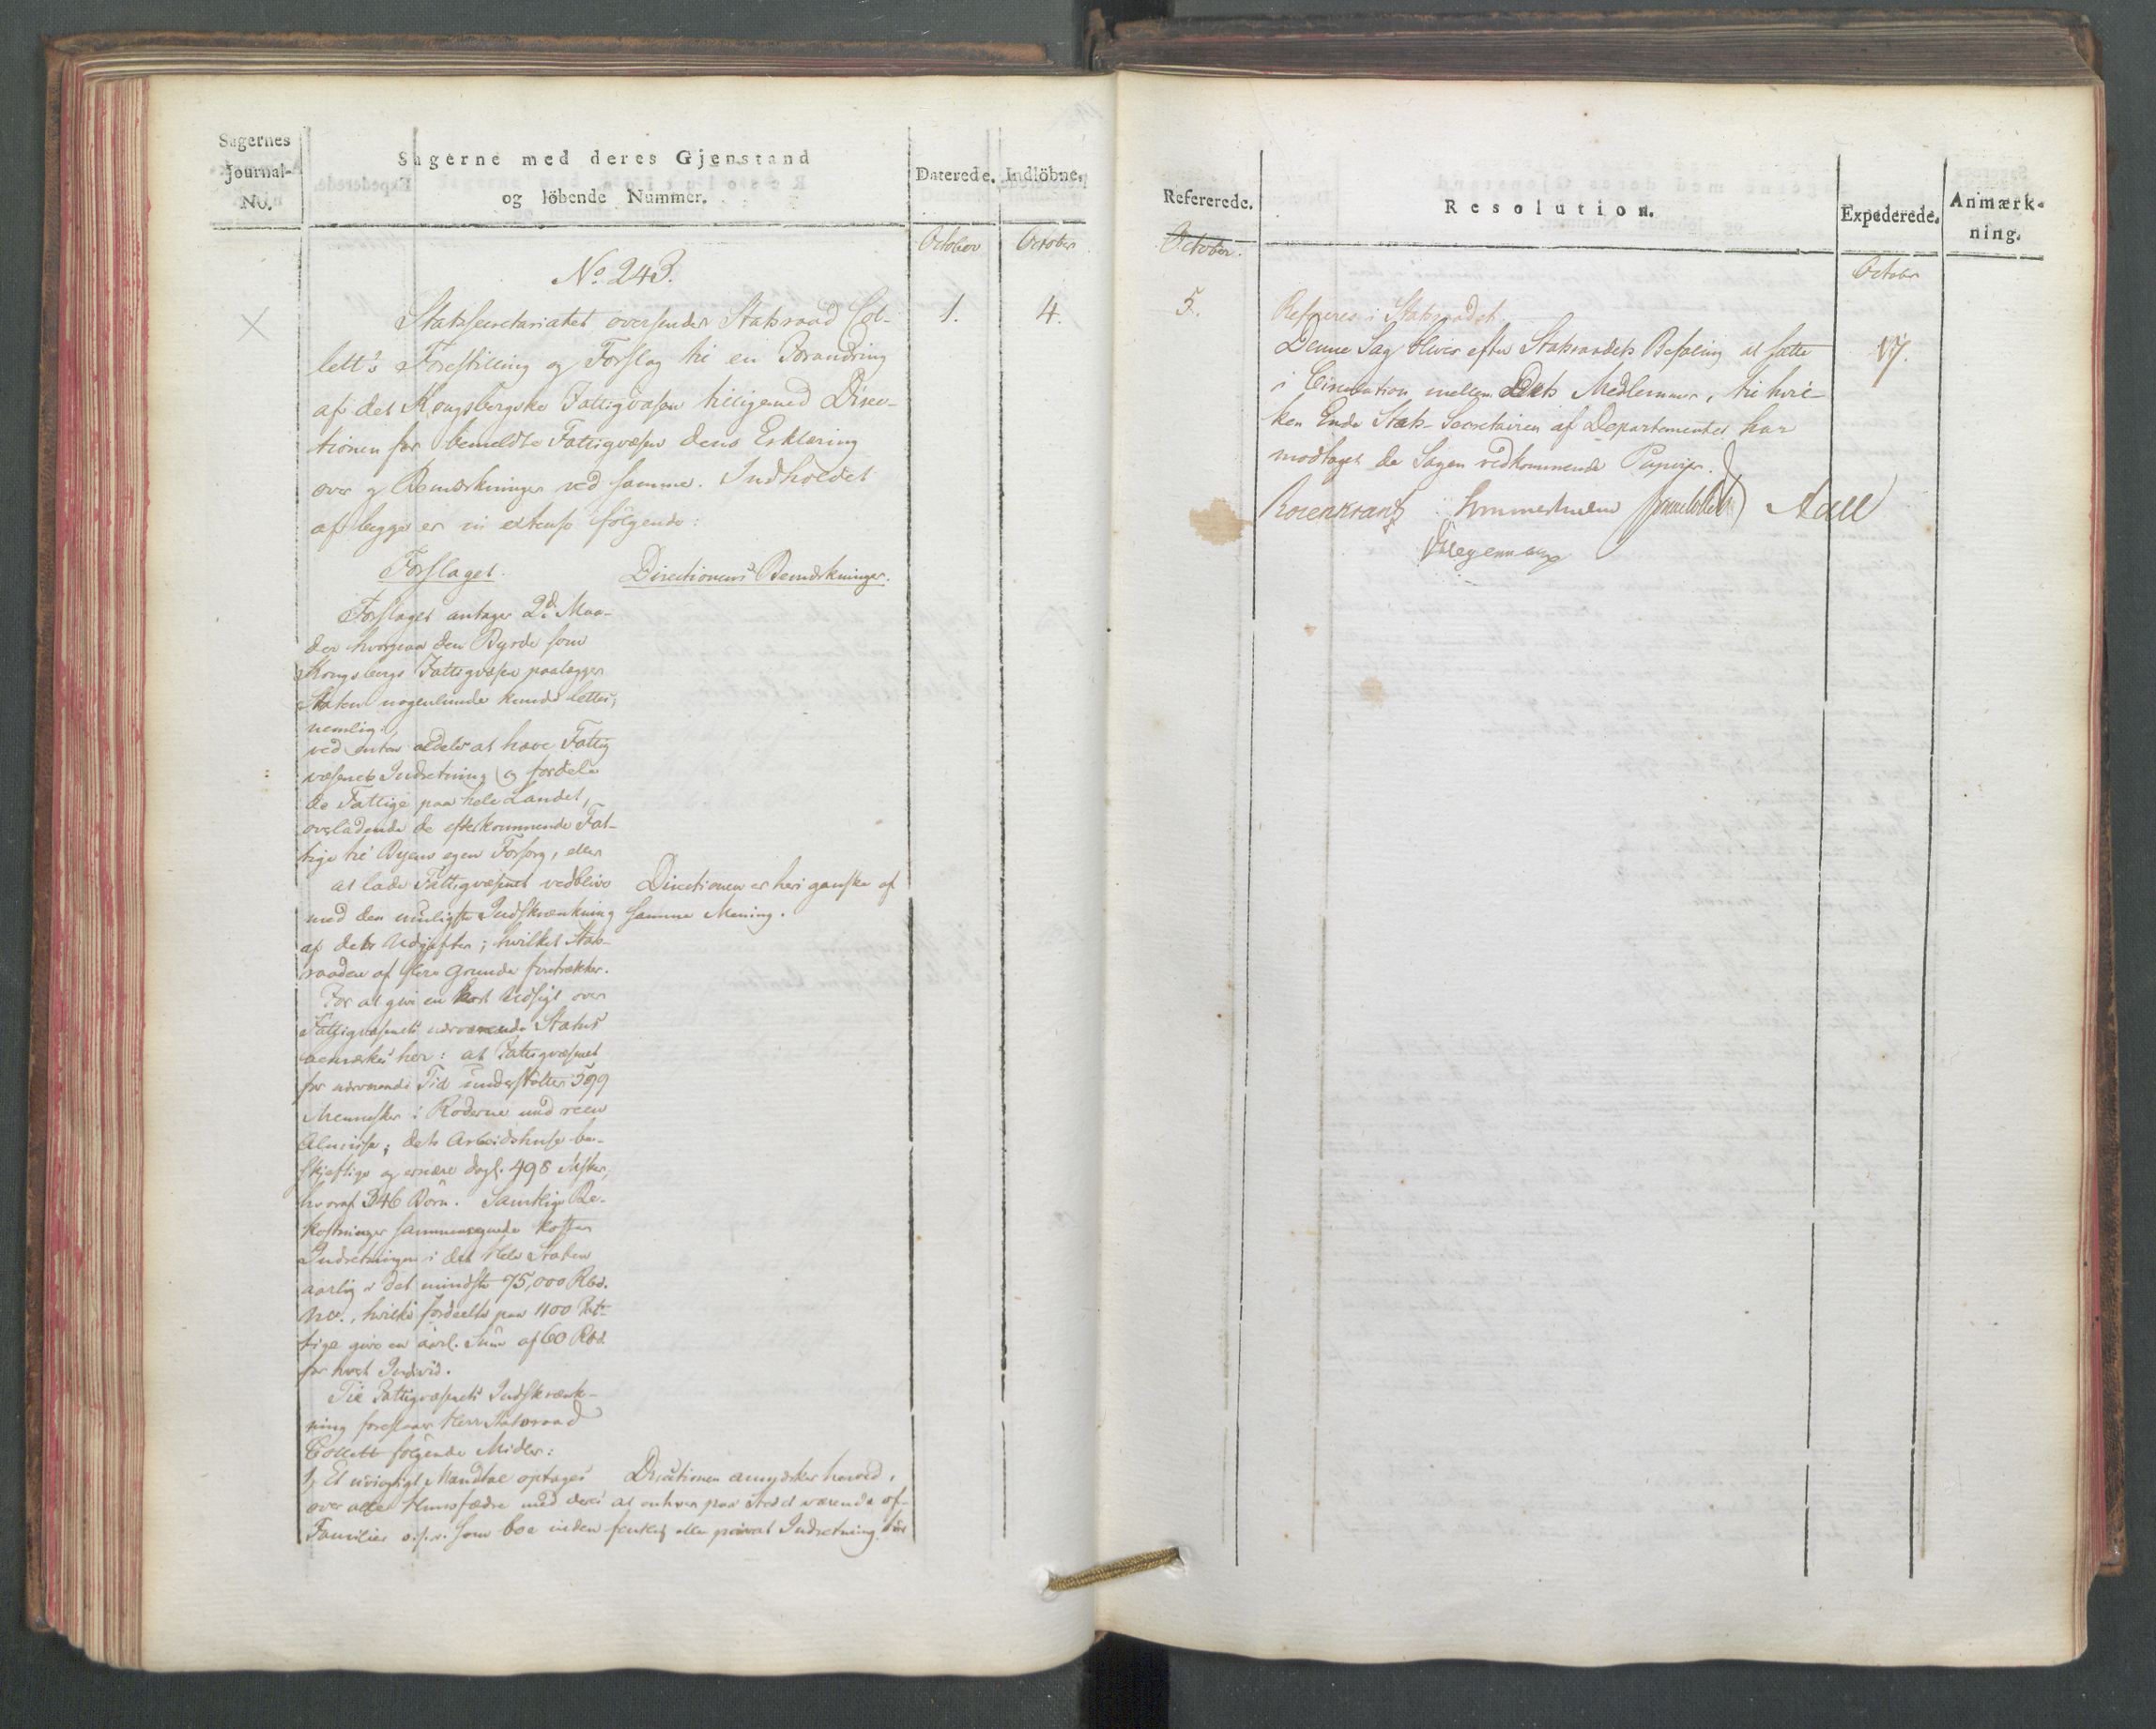 Sagernes
Journal-
No.
Sagerne med deres Gjenstand
og löbende Nummer.
Daterede.
Indlöbne.
October
October
No. 243.
Statssecretariatet oversender Statsraad Col-
1.
4.
lett's Forestilling og Forslag til en Forandring
af det Kongsbergske Fattigvæsen tilligemed Direc-
tionen for bemeldte Fattigvæsen dens Erklæring
over og Bemærkninger ved samme. Indholdet
af begge er in extenso fölgende:
Forslaget.
Directionens Bemærkninger.
Forslaget antager 2de Maa-
der hvorpaa den Byrde som
Kongsbergs Fattigvæsen paalægger
Staten nogenlunde kunde lettes,
nemlig:
ved enten aldeles at hæve Fattig
væsenets Indretning og fordele
de Fattige paa hele Landet,
overladende de efterkommende Fat-
tige til Byens egen Forsorg, eller
at lade Fattigvæsenet vedblive
Directionen er heri ganske af
med den muligste Indskrænkning
samme Mening.
af dets Udgifter; hvilket Stats-
raaden af flere Grunde foretrækker.
For at give en kort Udsigt over
Fattigvæsenets nærværende Status
bemærkes her: at Fattigvæsenet
for nærværende Tid understötter 599
Mennesker i Roderne med reen
Almisse; dets Arbeidshuse be-
skjeftige og ernære dagl. 498 Msker,
hvoraf 346 Börn. Samtlige Be-
kostninger sammenregnede koster
Indretningen i det Hele Staten
aarlig i det mindste 75,000 Rbd.
NV., hvilke fordeelte paa 1100 Fat-
tige give en aarl. Sum af 60 Rbd.
for hvert Individ.
Til Fattigvæsenets Indskrænk-
ning foreslaaer Herr Statsraad
Collett fölgende Midler:
1, Et nöiagtigt Mandtal optages
Directionen anmærker herved,
over alle Huusfædre med deres
at enhver paa Stedet værende of-
Familier o.s.v. som boe inden
fentlig eller privat Indretning bör
Refererede.
Resolution.
Expederede.
Anmærk-
ning.
October.
October
5.
Refereres i Statsraadet.
Denne Sag bliver efter Statsraadets Befaling at sætte
17.
i Circulation mellem Dets Medlemmer, til hvil-
ken Ende Stats-Secretairen af Departementet har
modtaget de Sagen vedkommende Papirer.
Rosenkrantz Sommerhielm Jonas Collett Aall
Diegermann